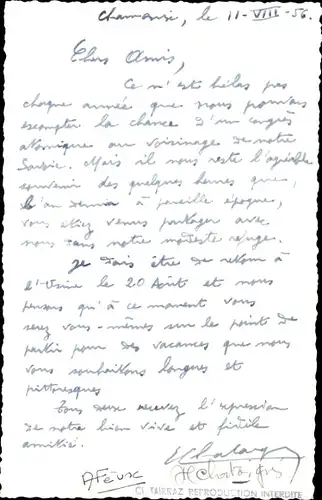 Chamonix, le 11-VIII-56
Chers Amis,
Ce n'est hélas pas
chaque année que nous pouvons
escompter la chance d'un congrès
atomique au voisinage de notre
Savoie. Mais il nous reste l'agréable
souvenir des quelques heures que,
l'an dernier à pareille époque,
vous étiez venus partager avec
nous dans notre modeste refuge.
Je dois être de retour à
l'Usine le 20 Août et nous
pensons qu'à ce moment vous
serez vous-mêmes sur le point de
partir pour des vacances que nous
vous souhaitons longues et
pittoresques
Tous deux recevez l'expression
de notre bien vive et fidèle
amitié.
CL TAIRRAZ REPRODUCTION INTERDITE